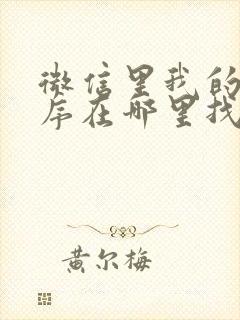 微信里我的
序在哪里找
黄尔梅